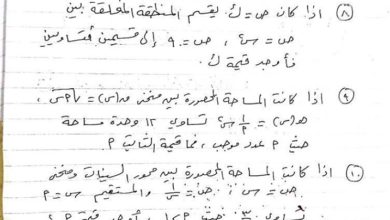 ⑧ اذا كان ص = ك يقسم المنطقة المغلقة بين
ص = س²، ص = ٩ إلى قسمين متساويين
فأوجد قيمة ك
⑨ اذا كانت المساحة المحصورة بين منحنى
هـ(س) = تساوي ١٢ وحدة مساحة
حيث P عدد موجب، فما قيمة الثابت P
⑩ اذا كانت المساحة المحصورة بين محور السينات ومنحنى
والمستقيم س = P
تساوي حيث أوجد قيمة P ؟